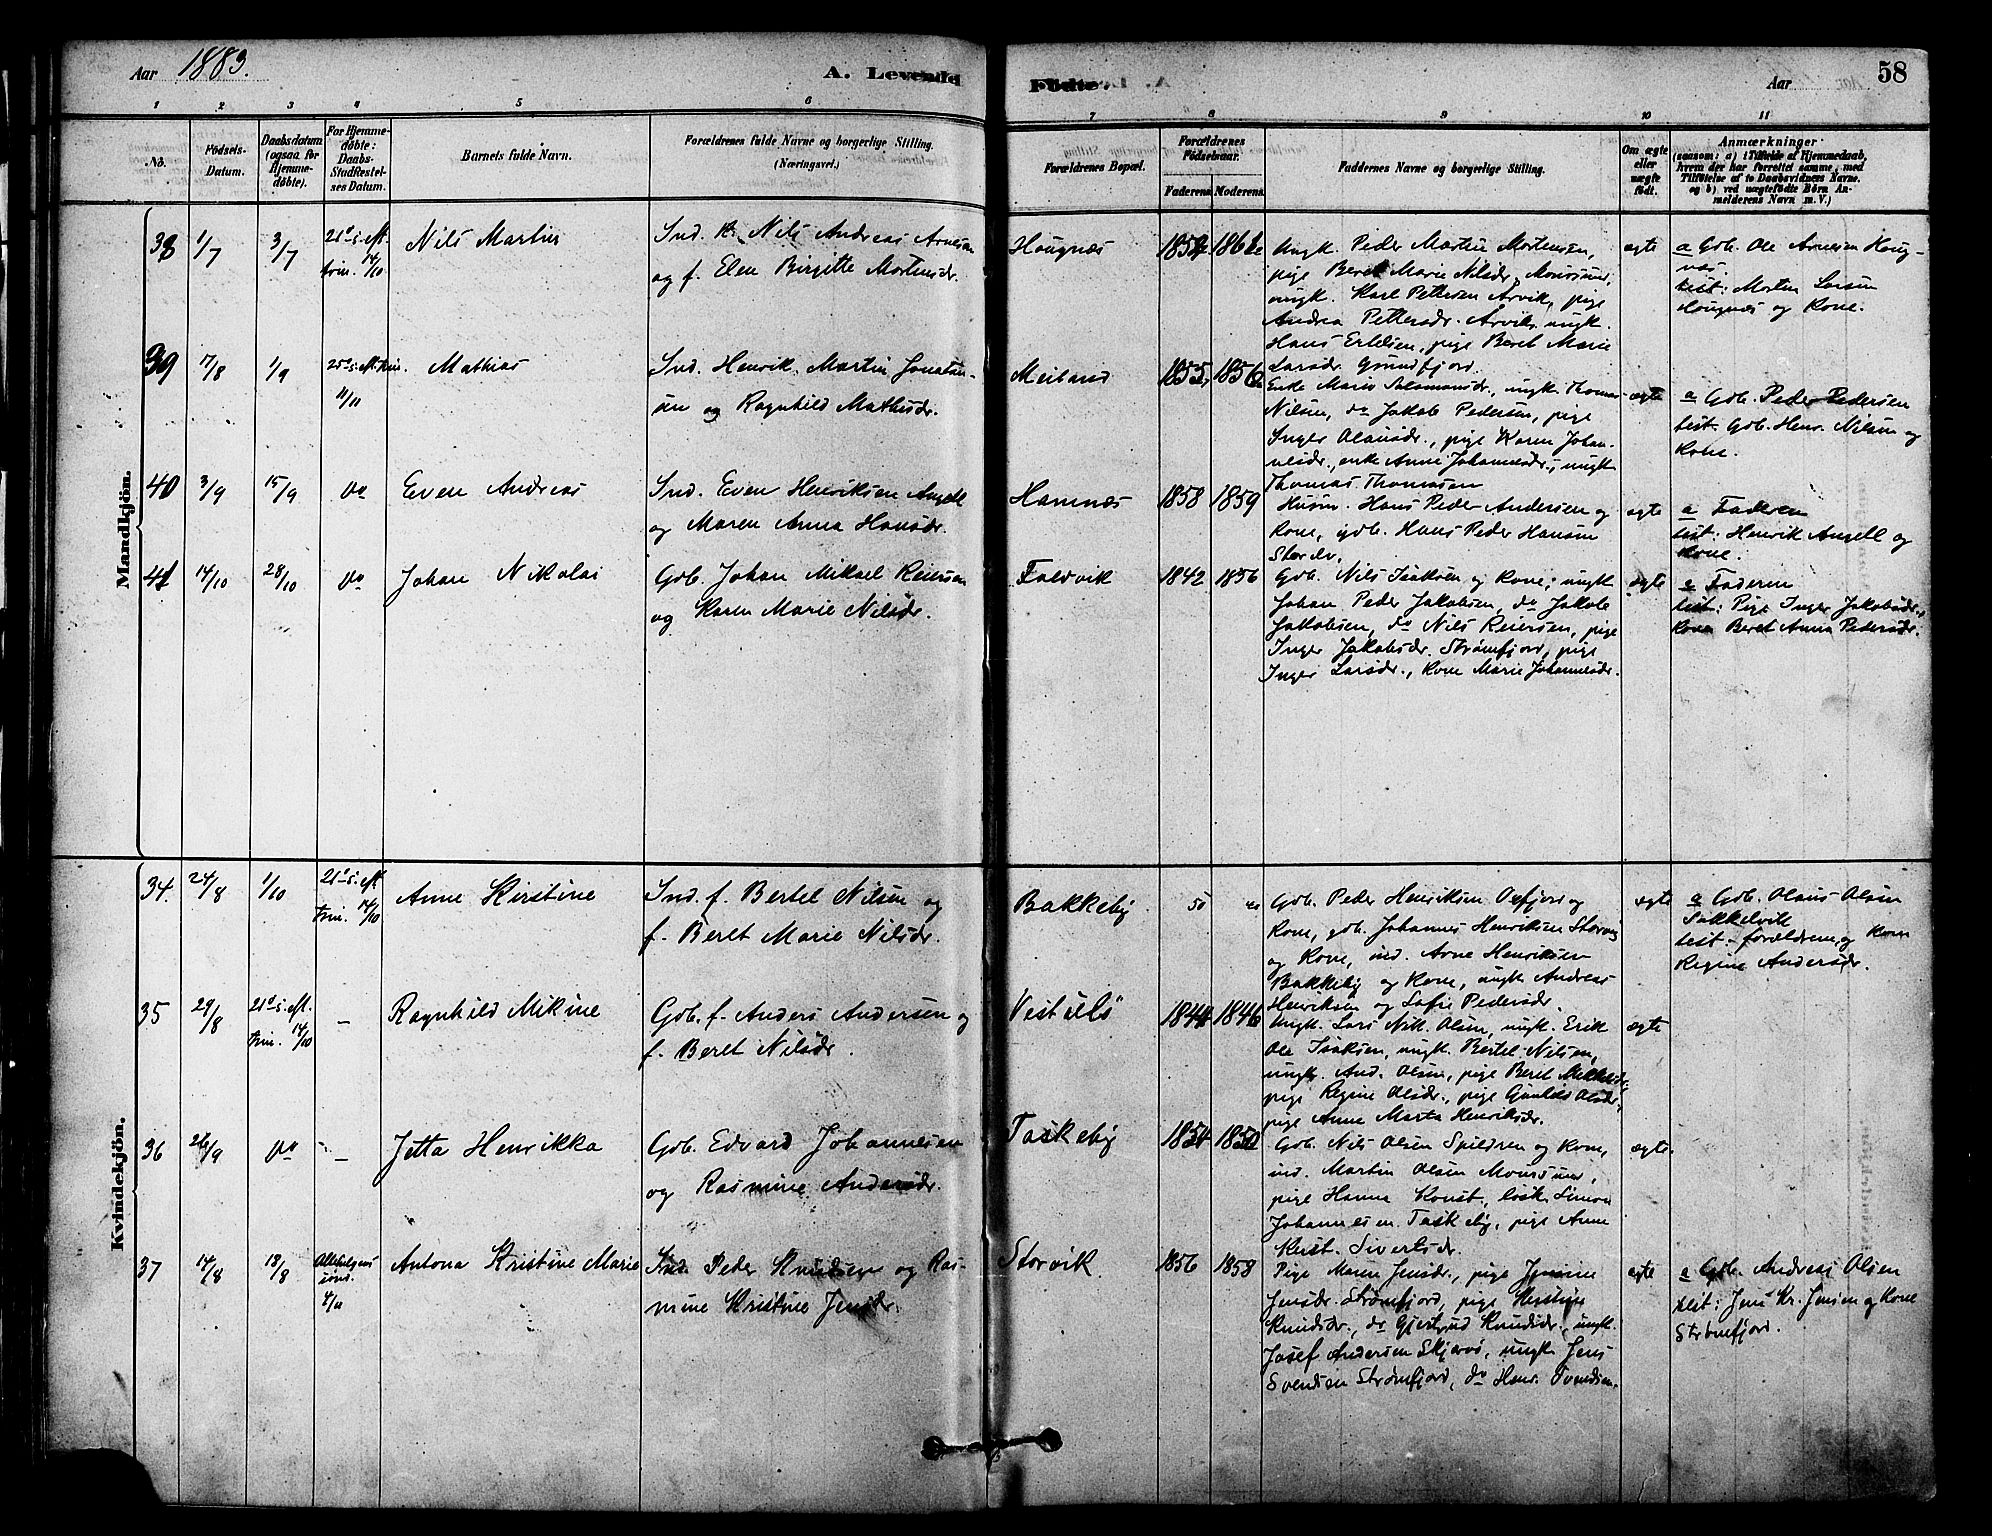 Aar 1883. A. Levende Födte. Aar 58
1 2 3 4 5 6 7 8 9 10 11
No. Födsels-Datum. Daabsdatum (ogsaa for Hjemmedöbte). For Hjemmedöbte: Daabs-Stadfæstelses Datum. Barnets fulde Navn. Forældrenes fulde Navne og borgerlige Stilling. (Næringsvei.)
Forældrenes Bopæl. Forældrenes Födselsaar. Faderens Moderens. Faddernes Navne og borgerlige Stilling. Om ægte eller uægte födt.
Anmærkninger
(saasom: a) i Tilfælde af Hjemmedaab,
hvem der har forrettet samme, med
Tilföielse af to Daabsvidners Navne.
og b) ved uægtefödte Börn An-
melderens Navn m. V.)
Mandkjön.
38 1/7 3/7 21d s. eft. trin. 14/10 Nils Martin
Ind. K. Nils Andreas Arnesen
og f. Elen Birgitte Mortensdr.
Hougnæs 1854 1862
Ungk. Peder Martin Mortensen,
pige Beret Marie Nilsdr. Moursund,
ungk. Karl Pettersen Arvik, pige
Andrea Pettersdr. Arvik, ungk.
Hans Erldsen, pige Beret Marie
Larsdr. Grundfjord.
ægte
a Gdb. Ole Arnesen Houg-
næs.
test: Morten Larsen
Hougnæs og Kone.
39 17/8 1/9 25d s. eft. trin. 11/11 Mathias
Ind. Henrik Martin Jonatan-
sen og Ragnhild Mathisdr.
Meiland 1855 1856
Enke Marie Salamonsdr, ungk. Thomas
Nilsen, do Jakob Pedersen, pige
Inger Olausdr., pige Karen Johan-
nesdr., enke Anne Johannesdr., ungk
Thomas Thomasen
ægte
a Gdb. Peder Pedersen
test. Gdb. Henr. Nilsen og
Kone.
40 3/9 15/9 do Even Andreas
Ind. Even Henriksen Angell
og Maren Anna Hansdr.
Hamnæs 1858 1859
Husm. Hans Peder Andersen og
Kone, gdb. Hans Peder Hansen
ægte
a Faderen
test: Henrik Angell og
Kone.
41 14/10 28/10 do Johan Nikolai
Gdb. Johan Mikael Reiersen
og Karen Marie Nilsdr.
Faldvik 1842 1856
Gdb. Nils Isaksen og Kone, ungk
Johan Peder Jakobsen, do Jakob
Jakobsen, do Nils Reiersen, pige
Inger Jakobsdr. Strømfjord, pige
Inger Larsdr., Kone Marie Johannesdr.
ægte
a Faderen
test: Pige Inger Jakobsdr.,
Kone Beret Anna Pedersdr.
Kvindekjön.
34. 24/8 1/10 21d s. eft. trin. 14/10 Anne Kirstine
Ind. f. Bertel Nilsen og
f. Beret Marie Nilsdr.
Bakkeby 50
Gdb. Peder Henriksen Oxfjord og
Kone, gdb. Johannes Henriksen Storvig
og Kone, ind. Arne Henriksen
Bakkeby og Kone, ungk Andreas
Henriksen og Sofie Pedersdr.
ægte
a Gdb. Olaus Olsen
Sakkelvik
test. forældrene og Kone
Regine Andersdr.
35 29/8 21d s. eft. trin. 14/10 – Ragnhild Mikine
Gdb. f. Anders Andersen og
f. Beret Nilsdr.
Vest Uls 1844 1846
Ungk. Lars Nik. Olsen, ungk. Erik
Ole Isaksen, ungk. Bertel Nilsen,
ungk. And. Olsen, pige Beret Mikkelsdr,
pige Regine Olsdr., pige Gunhild Olsdr,
pige Anne Marta Henriksdr.
ægte
36 26/9 do – Jetta Henrikka
Gdb. Edvard Johannesen
og Rasmine Andersdr.
Taskeby 1854 1850
Gdb. Nils Olsen Spildren og Kone,
ind. Martin Olsen Moursund,
pige Hanna Konst, losk. Simon
Johannesen Taskeby, pige Anne
Kirst. Sivertsdr.
ægte.
37 14/8 18/8 Allehelgens sönd. 4/11 Antona Kristine Marie
Ind. Peder Knudsen og Ras-
mine Kristine Jensdr.
Storvik. 1856 1858
Pige Maren Jensdr., pige
Jensdr. Strømfjord, pige Kirstine
Knudsdr., do Gjertrud Knudsdr., ungk.
Josef Andersen Skjervø, ungk Jens
Svendsen Strømfjord, do Henr. Svendsen.
ægte
a Gdb. Andreas Olsen
test: Jens Kr. Jensen og Kone
Strømfjord.